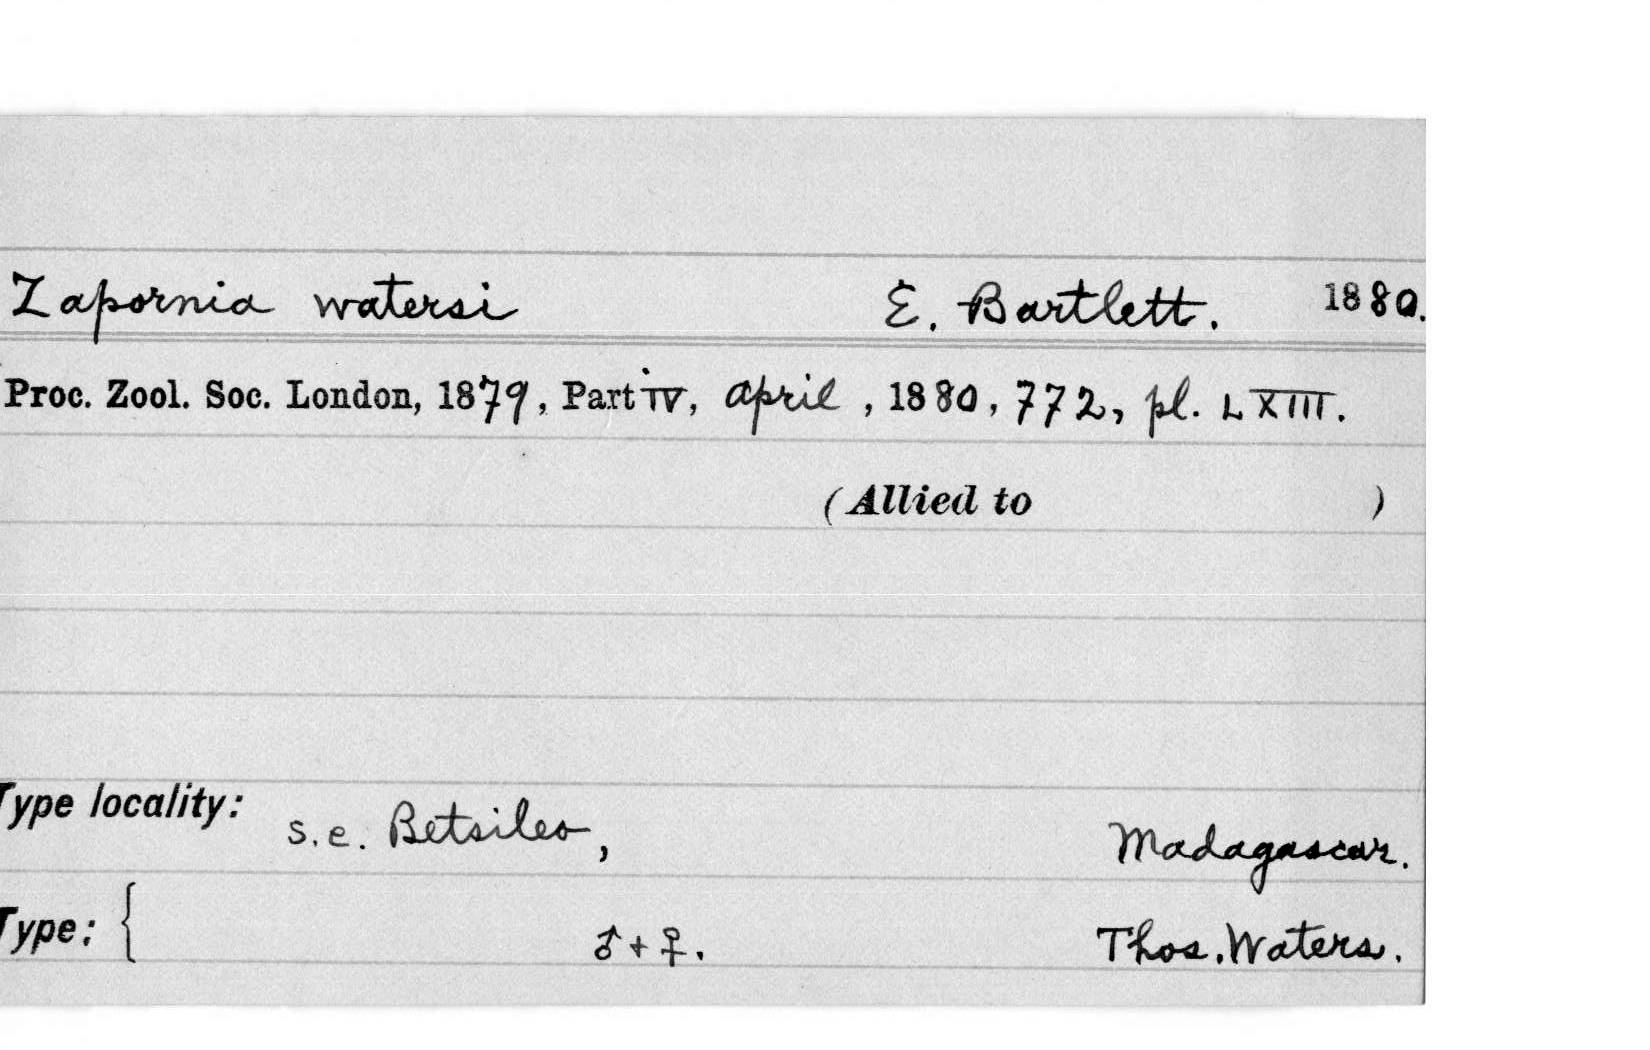 Zapornia watersi E. Bartlett. 1880.
Proc. Zool. Soc. London, 1879, Part IV, april, 1880, 772, pl. LXIII.
(Allied to )
Type locality: s.e. Betsileo, Madagascar.
Type: { ♂ + ♀. Thos. Waters.